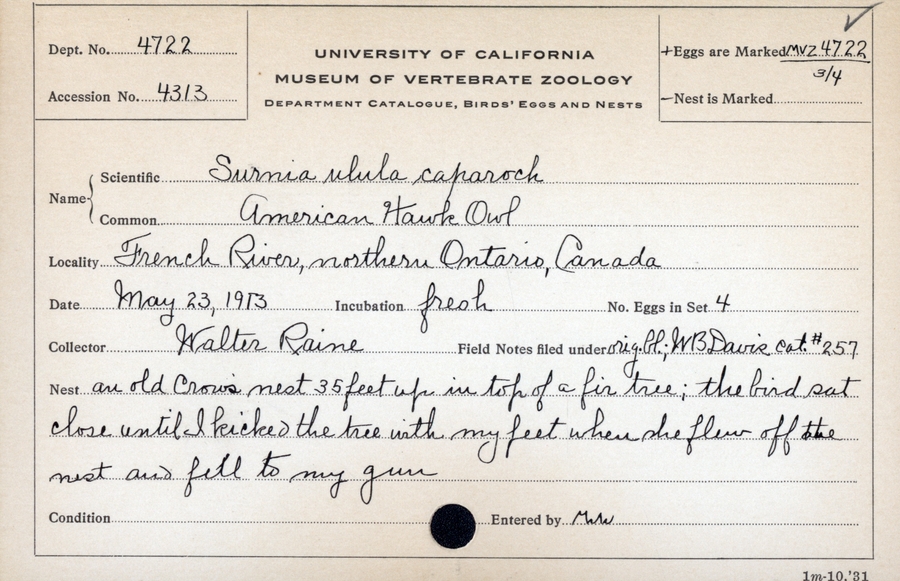 Dept. No. 4722
Accession No. 4313
UNIVERSITY OF CALIFORNIA
MUSEUM OF VERTEBRATE ZOOLOGY
DEPARTMENT CATALOGUE, BIRDS' EGGS AND NESTS
+Eggs are Marked MVZ 4722
3/4
—Nest is Marked
Name Scientific Surnia ulula caparoch
Common American Hawk Owl
Locality French River, northern Ontario, Canada
Date May 23, 1913 Incubation fresh No. Eggs in Set 4
Collector Walter Raine Field Notes filed under orig. bl.; WB Davis cat. #257
Nest an old Crow's nest 35 feet up in top of a fir tree; the bird sat
close until I kicked the tree with my feet when she flew off the
nest and fell to my gun
Condition Entered by
1m-10,'31